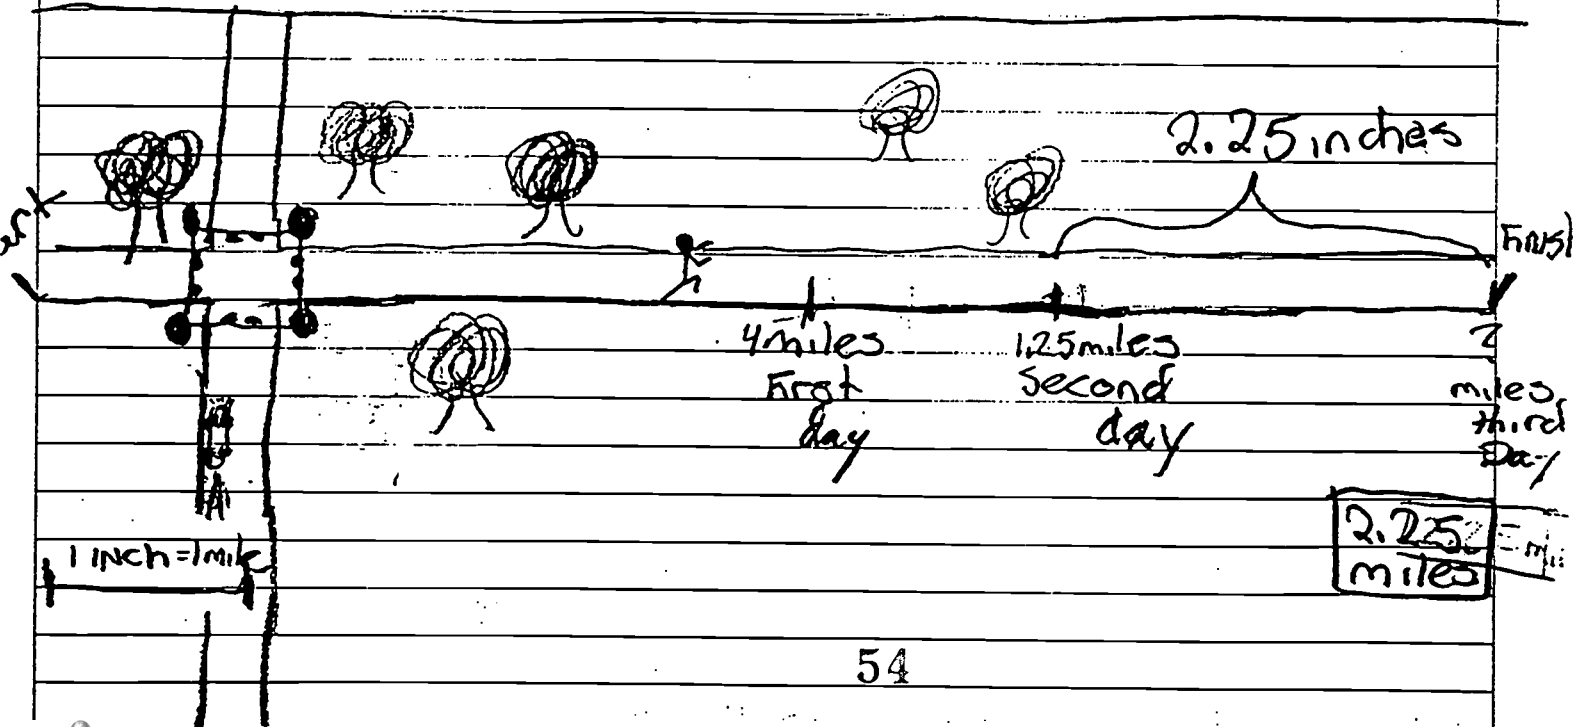 2.25 inches
Finish
4 miles
First
day
1.25 miles
Second
day
?
miles
third
Day
2.225
miles
1 INCH = 1 mile
54